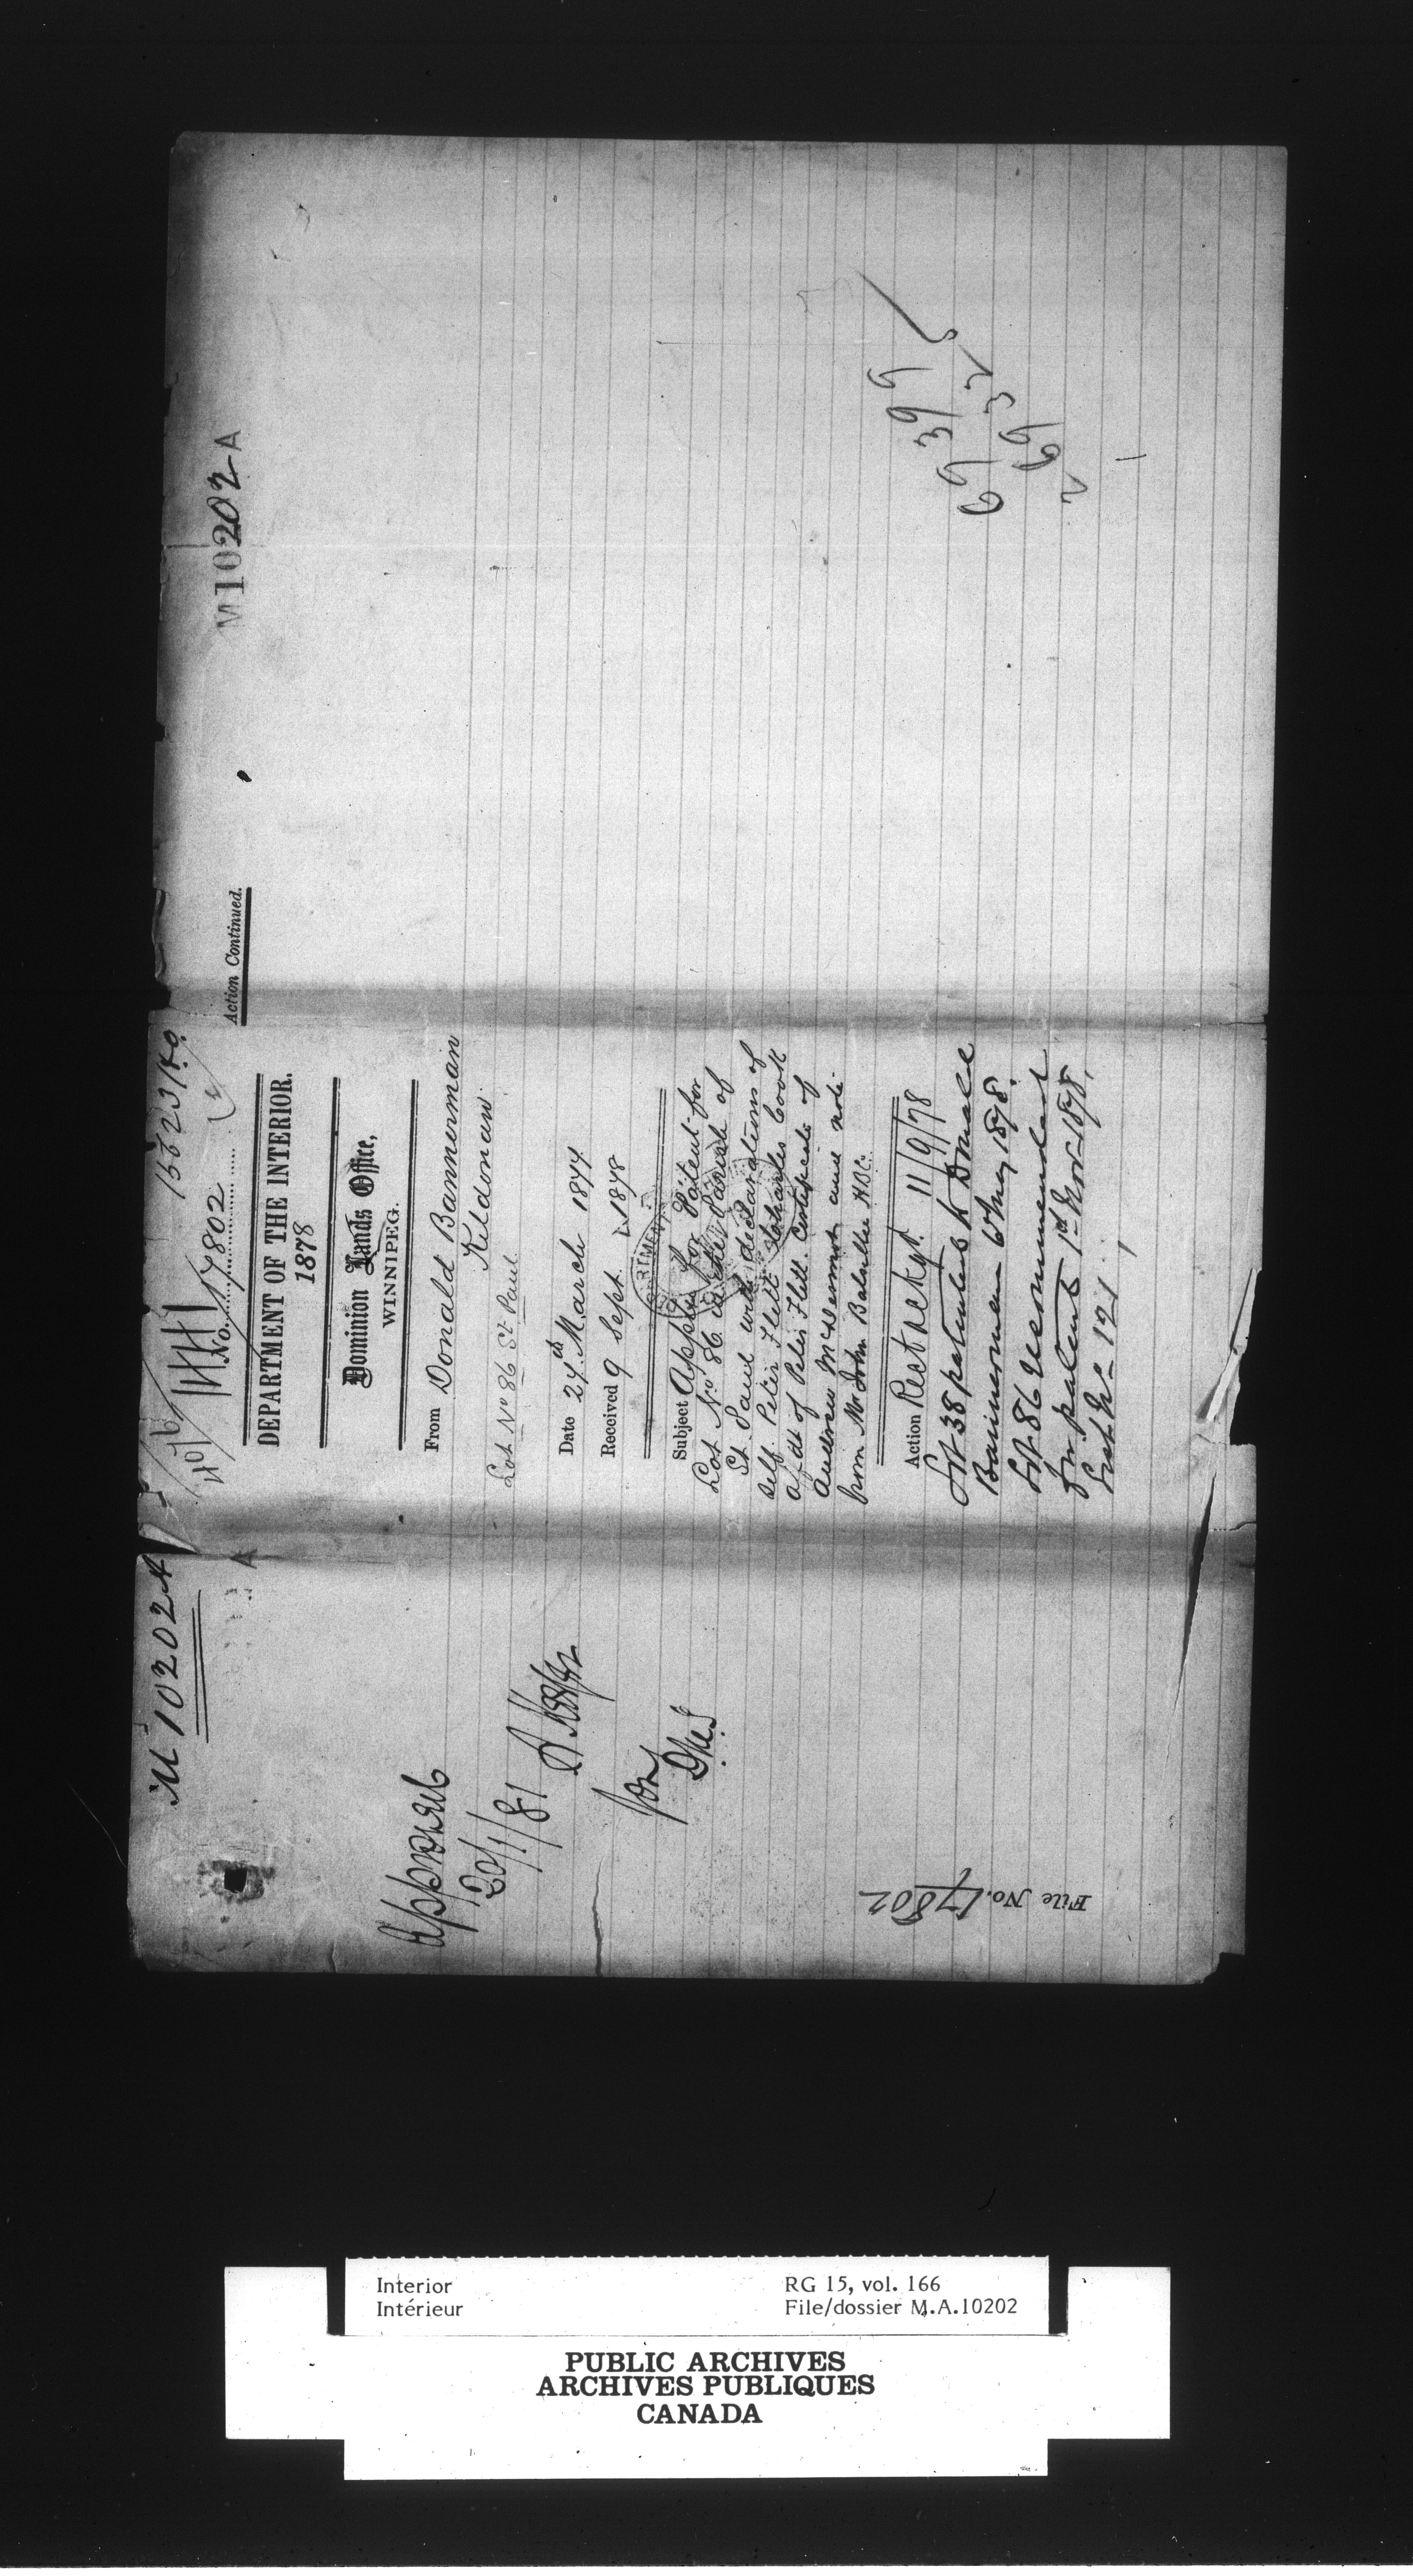 M10202A
Approved
20/1/81
for
File No. 17802
No. 17802
DEPARTMENT OF THE INTERIOR.
1878
Dominion Lands Office,
WINNIPEG.
From Donald Bannerman
Kildonan
Lot No 86 St. Paul
Date 24th March 1877
Received 9 Sept. 1878
Subject Appln for Patent for
Lot No 86 in the Parish of
St. Paul with declarations of
self. Peter Flett Charles Cook
afdt of Peter Flett. Certificate of
Andrew McDermot and note
from Mr John Balsillie H.B.C.
Action Rect ackgd. 11/9/78
Lot 38 patented to Donald
Bannerman 6 May 1878.
Lot 86 recommended
for patent 1st Nov 1878.
List No 121
Action Continued.
M10202-A
69399
69332
Interior
Intérieur
RG 15, vol. 166
File/dossier M.A.10202
PUBLIC ARCHIVES
ARCHIVES PUBLIQUES
CANADA